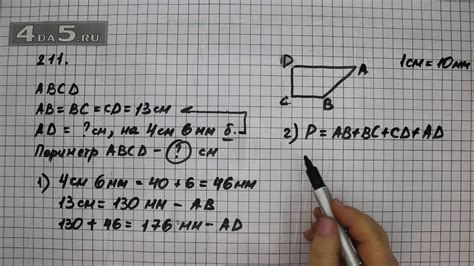 4DA5.RU
211.
ABCD
AB = BC = CD = 13 см
AD = ? см, на 4 см 6 мм б.
Периметр ABCD – ? см
1) 4 см 6 мм = 40 + 6 = 46 мм
13 см = 130 мм – AB
130 + 46 = 176 мм – AD
D
A
C
B
1 см = 10 мм
2) P = AB + BC + CD + AD